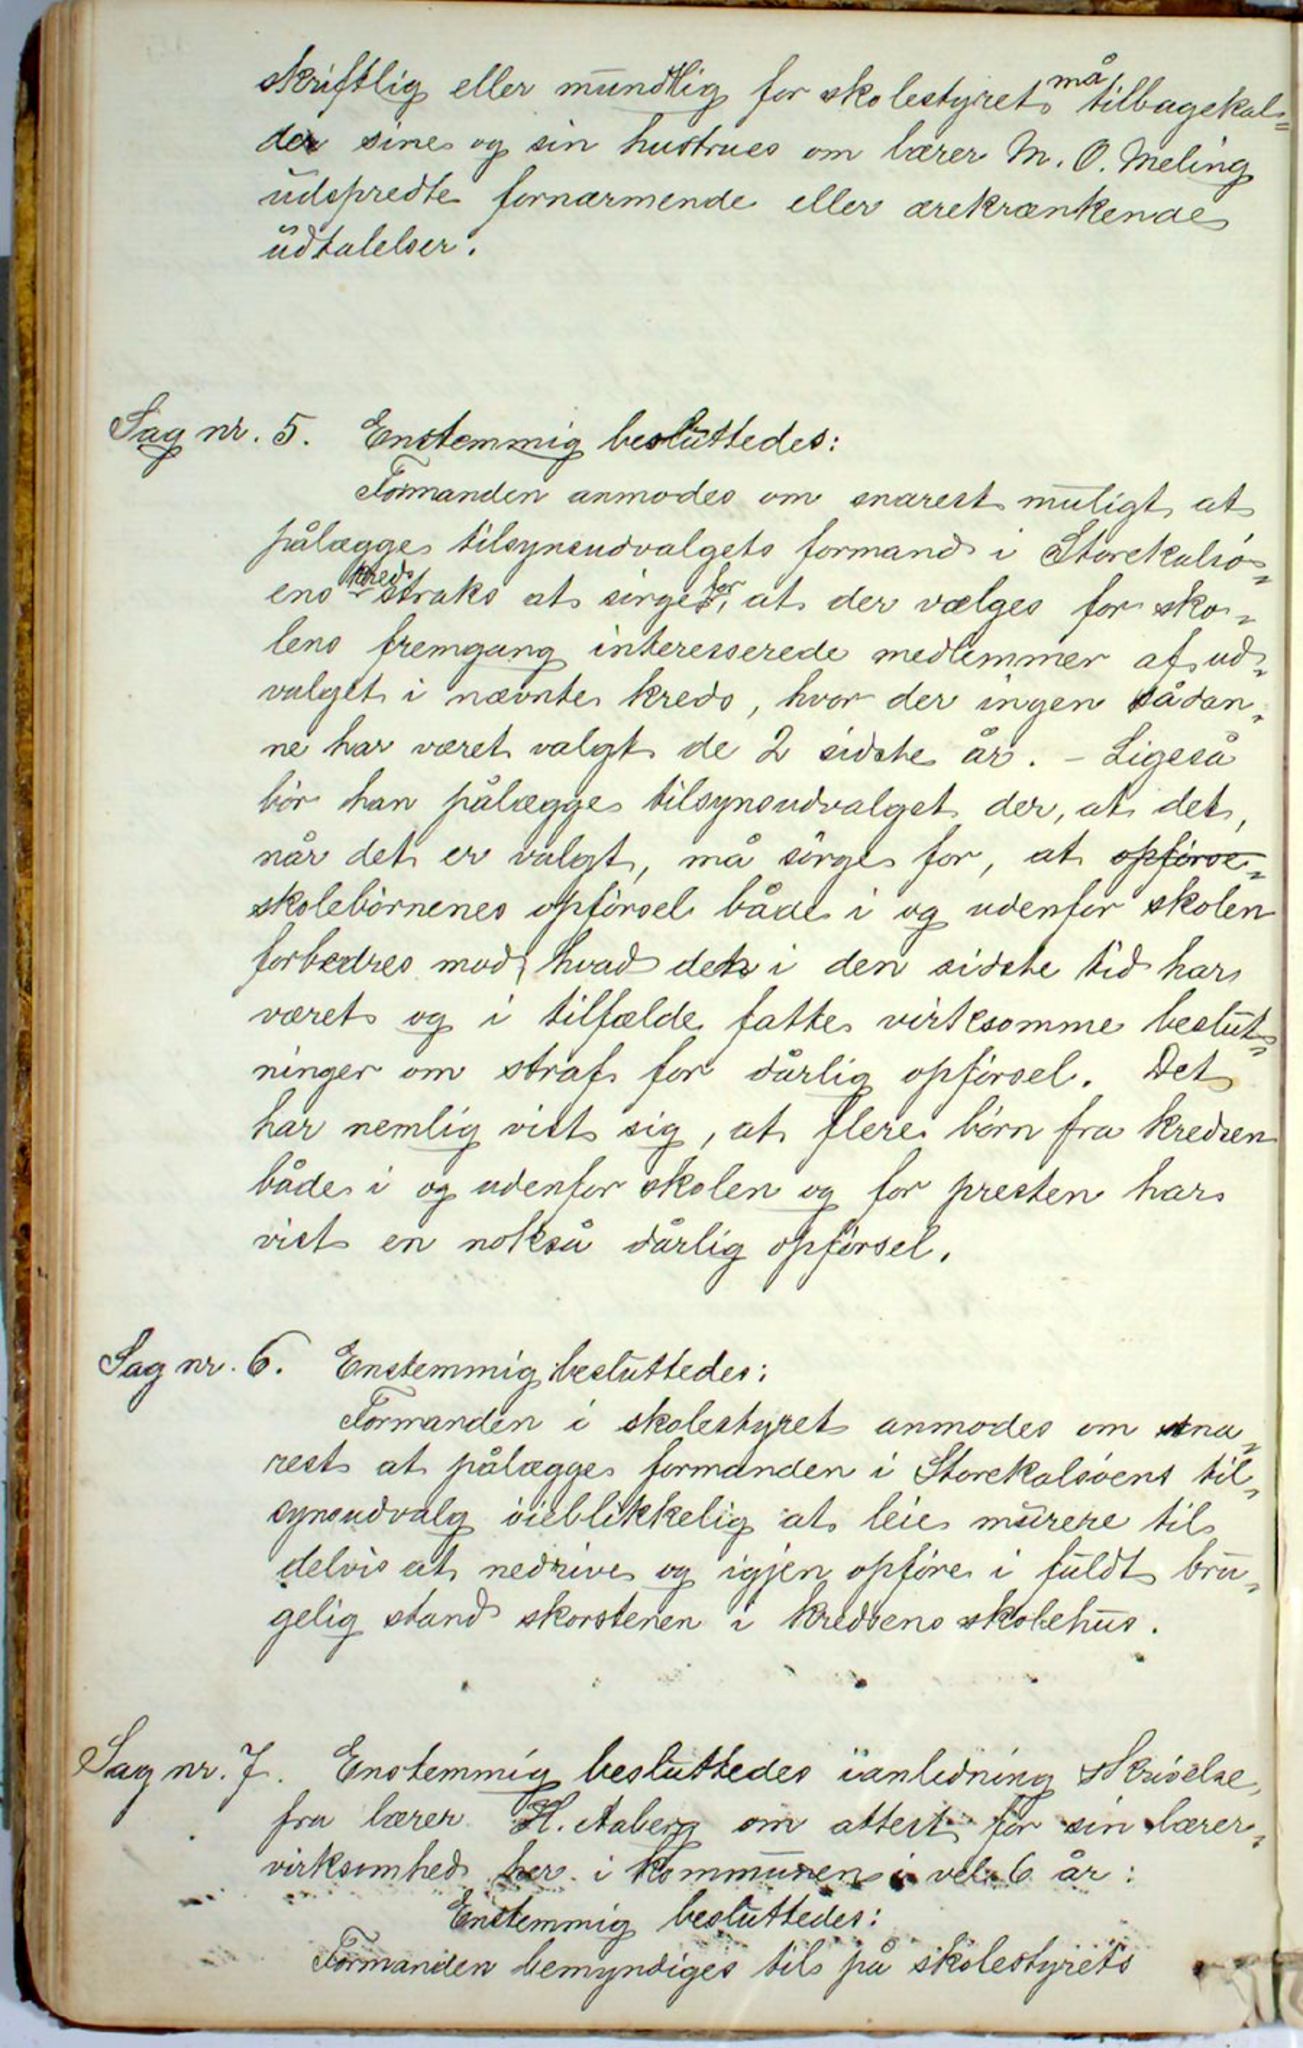 skriftlig eller mundtlig for skolestyret må tilbagekal=
der sine og sin hustrues om lærer M. O. Meling
udspredte fornærmende eller ærekrænkende
udtalelser.
Sag nr. 5. Enstemmig besluttedes:
Formanden anmodes om snarest muligt at
pålægge tilsynsudvalgets formand i Storekalsö=
ens kreds straks at sörge for, at der vælges for sko=
lens fremgang interesserede medlemmer af ud=
valget i nævnte kreds, hvor der ingen sådan=
ne har været valgt de 2 sidste år. - Ligeså
bör han pålægge tilsynsudvalget der, at det,
når det er valgt, må sörge for, at opförse=
skolebörnenes opförsel både i og udenfor skolen
forbedres mod hvad den i den sidste tid har
været og i tilfælde fatte virksomme beslut=
ninger om straf for dårlig opförsel. Det
har nemlig vist sig, at flere börn fra kredsen
både i og udenfor skolen og for presten har
vist en nokså dårlig opförsel.
Sag nr. 6. Enstemmig besluttedes:
Formanden i skolestyret anmodes om sna=
rest at pålægge formanden i Storekalsöens til=
synsudvalg öieblikkelig at leie murere til
delvis at nedrive og igjen opföre i fuldt bru=
gelig stand skorstenen i kredsens skolehus.
Sag nr. 7. Enstemmig besluttedes ianledning Skrivelse
fra lærer H. Aaberg om attest for sin lærer=
virksomhed her i kommunen i vel 6 år:
Enstemmig besluttedes:
Formanden bemyndiges til på skolestyrets